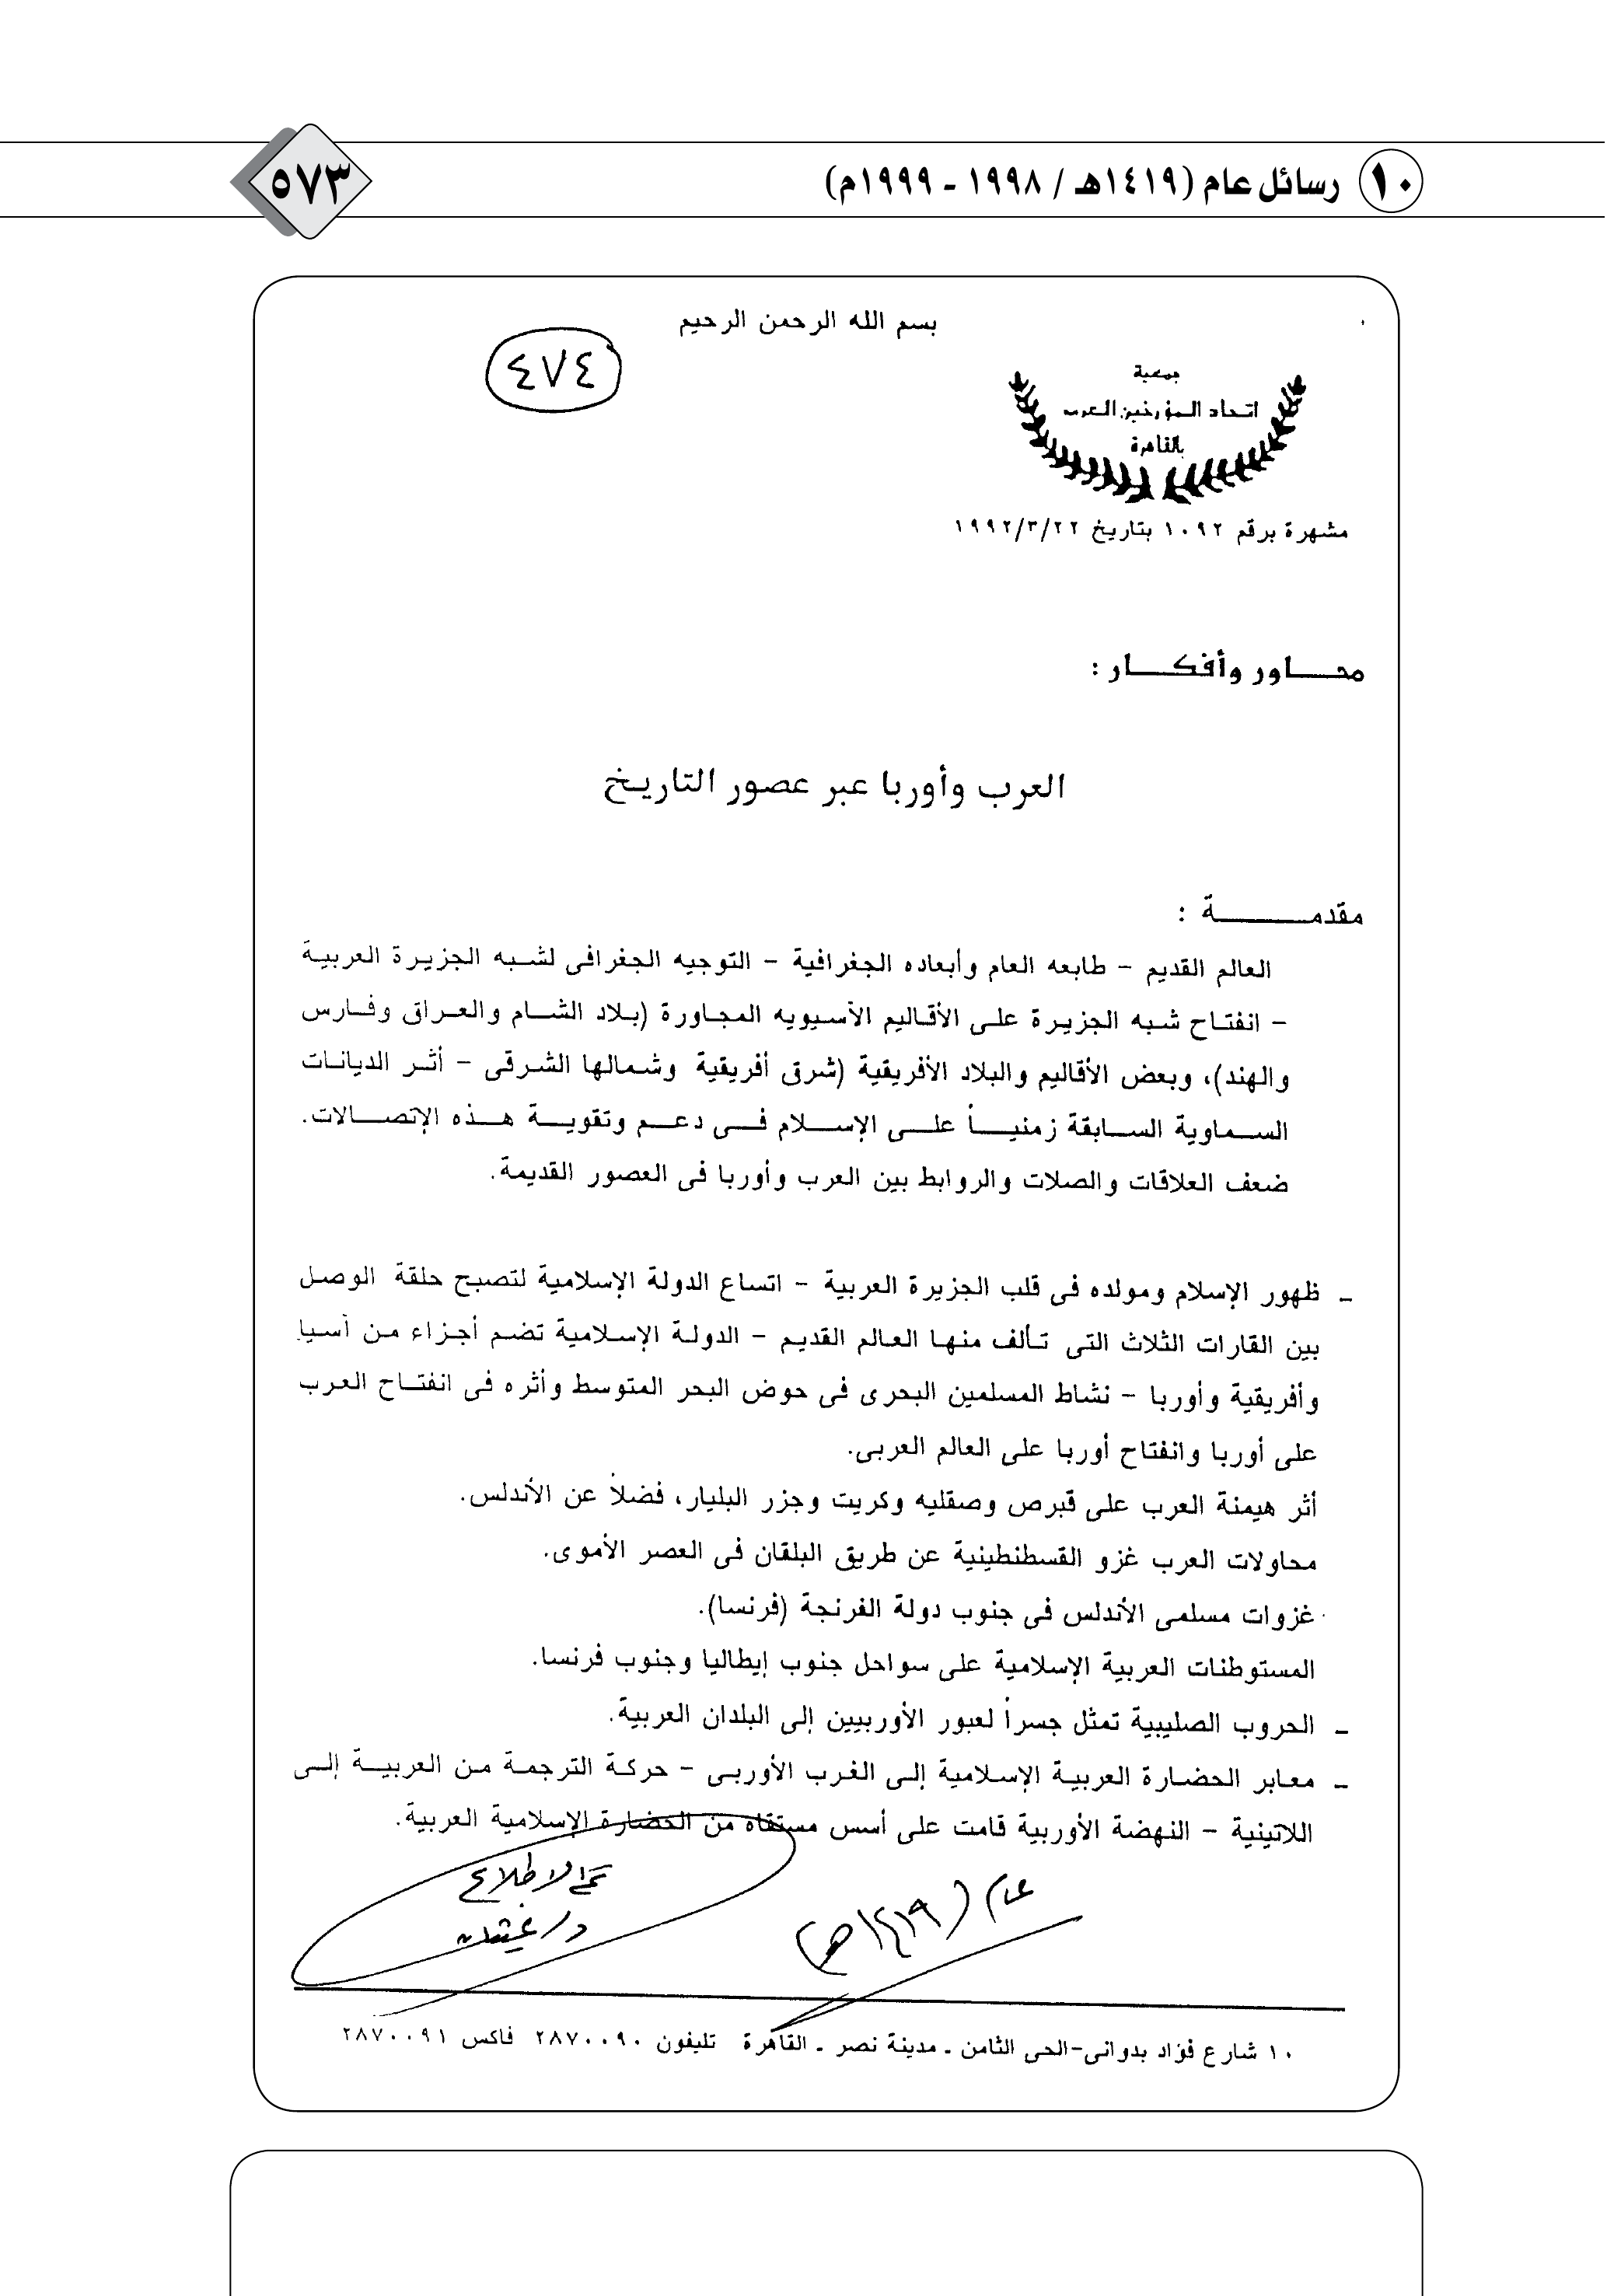 ١٠ رسائل عام (١٤١٩هـ / ١٩٩٨ - ١٩٩٩م)
٥٧٣
بسم الله الرحمن الرحيم
٤٧٤
جمعية
اتحاد المؤرخين العرب
بالقاهرة
مشهرة برقم ١٠٩٢ بتاريخ ١٩٩٢/٣/٢٢
محاور وأفكار :
العرب وأوربا عبر عصور التاريخ
مقدمة :
العالم القديم - طابعه العام وأبعاده الجغرافية - التوجيه الجغرافى لشبه الجزيرة العربية
- انفتاح شبه الجزيرة على الأقاليم الآسيويه المجاورة (بلاد الشام والعراق وفارس
والهند)، وبعض الأقاليم والبلاد الأفريقية (شرق أفريقية وشمالها الشرقى - أثر الديانات
السماوية السابقة زمنياً على الإسلام فى دعم وتقوية هذه الإتصالات.
ضعف العلاقات والصلات والروابط بين العرب وأوربا فى العصور القديمة.
- ظهور الإسلام ومولده فى قلب الجزيرة العربية - اتساع الدولة الإسلامية لتصبح حلقة الوصل
بين القارات الثلاث التى تألف منها العالم القديم - الدولة الإسلامية تضم أجزاء من آسيا
وأفريقية وأوربا - نشاط المسلمين البحرى فى حوض البحر المتوسط وأثره فى انفتاح العرب
على أوربا وانفتاح أوربا على العالم العربى.
أثر هيمنة العرب على قبرص وصقليه وكريت وجزر البليار، فضلاً عن الأندلس.
محاولات العرب غزو القسطنطينية عن طريق البلقان فى العصر الأموى.
غزوات مسلمى الأندلس فى جنوب دولة الفرنجة (فرنسا).
المستوطنات العربية الإسلامية على سواحل جنوب إيطاليا وجنوب فرنسا.
- الحروب الصليبية تمثل جسراً لعبور الأوربيين إلى البلدان العربية.
- معابر الحضارة العربية الإسلامية إلى الغرب الأوربى - حركة الترجمة من العربية إلى
اللاتينية - النهضة الأوربية قامت على أسس مستقاه من الحضارة الإسلامية العربية.
تم الاطلاع
د/ غيثان
عام (١٤١٩هـ)
١٠ شارع فؤاد بدوانى-الحى الثامن ـ مدينة نصر ـ القاهرة تليفون ٢٨٧٠٠٩٠ فاكس ٢٨٧٠٠٩١